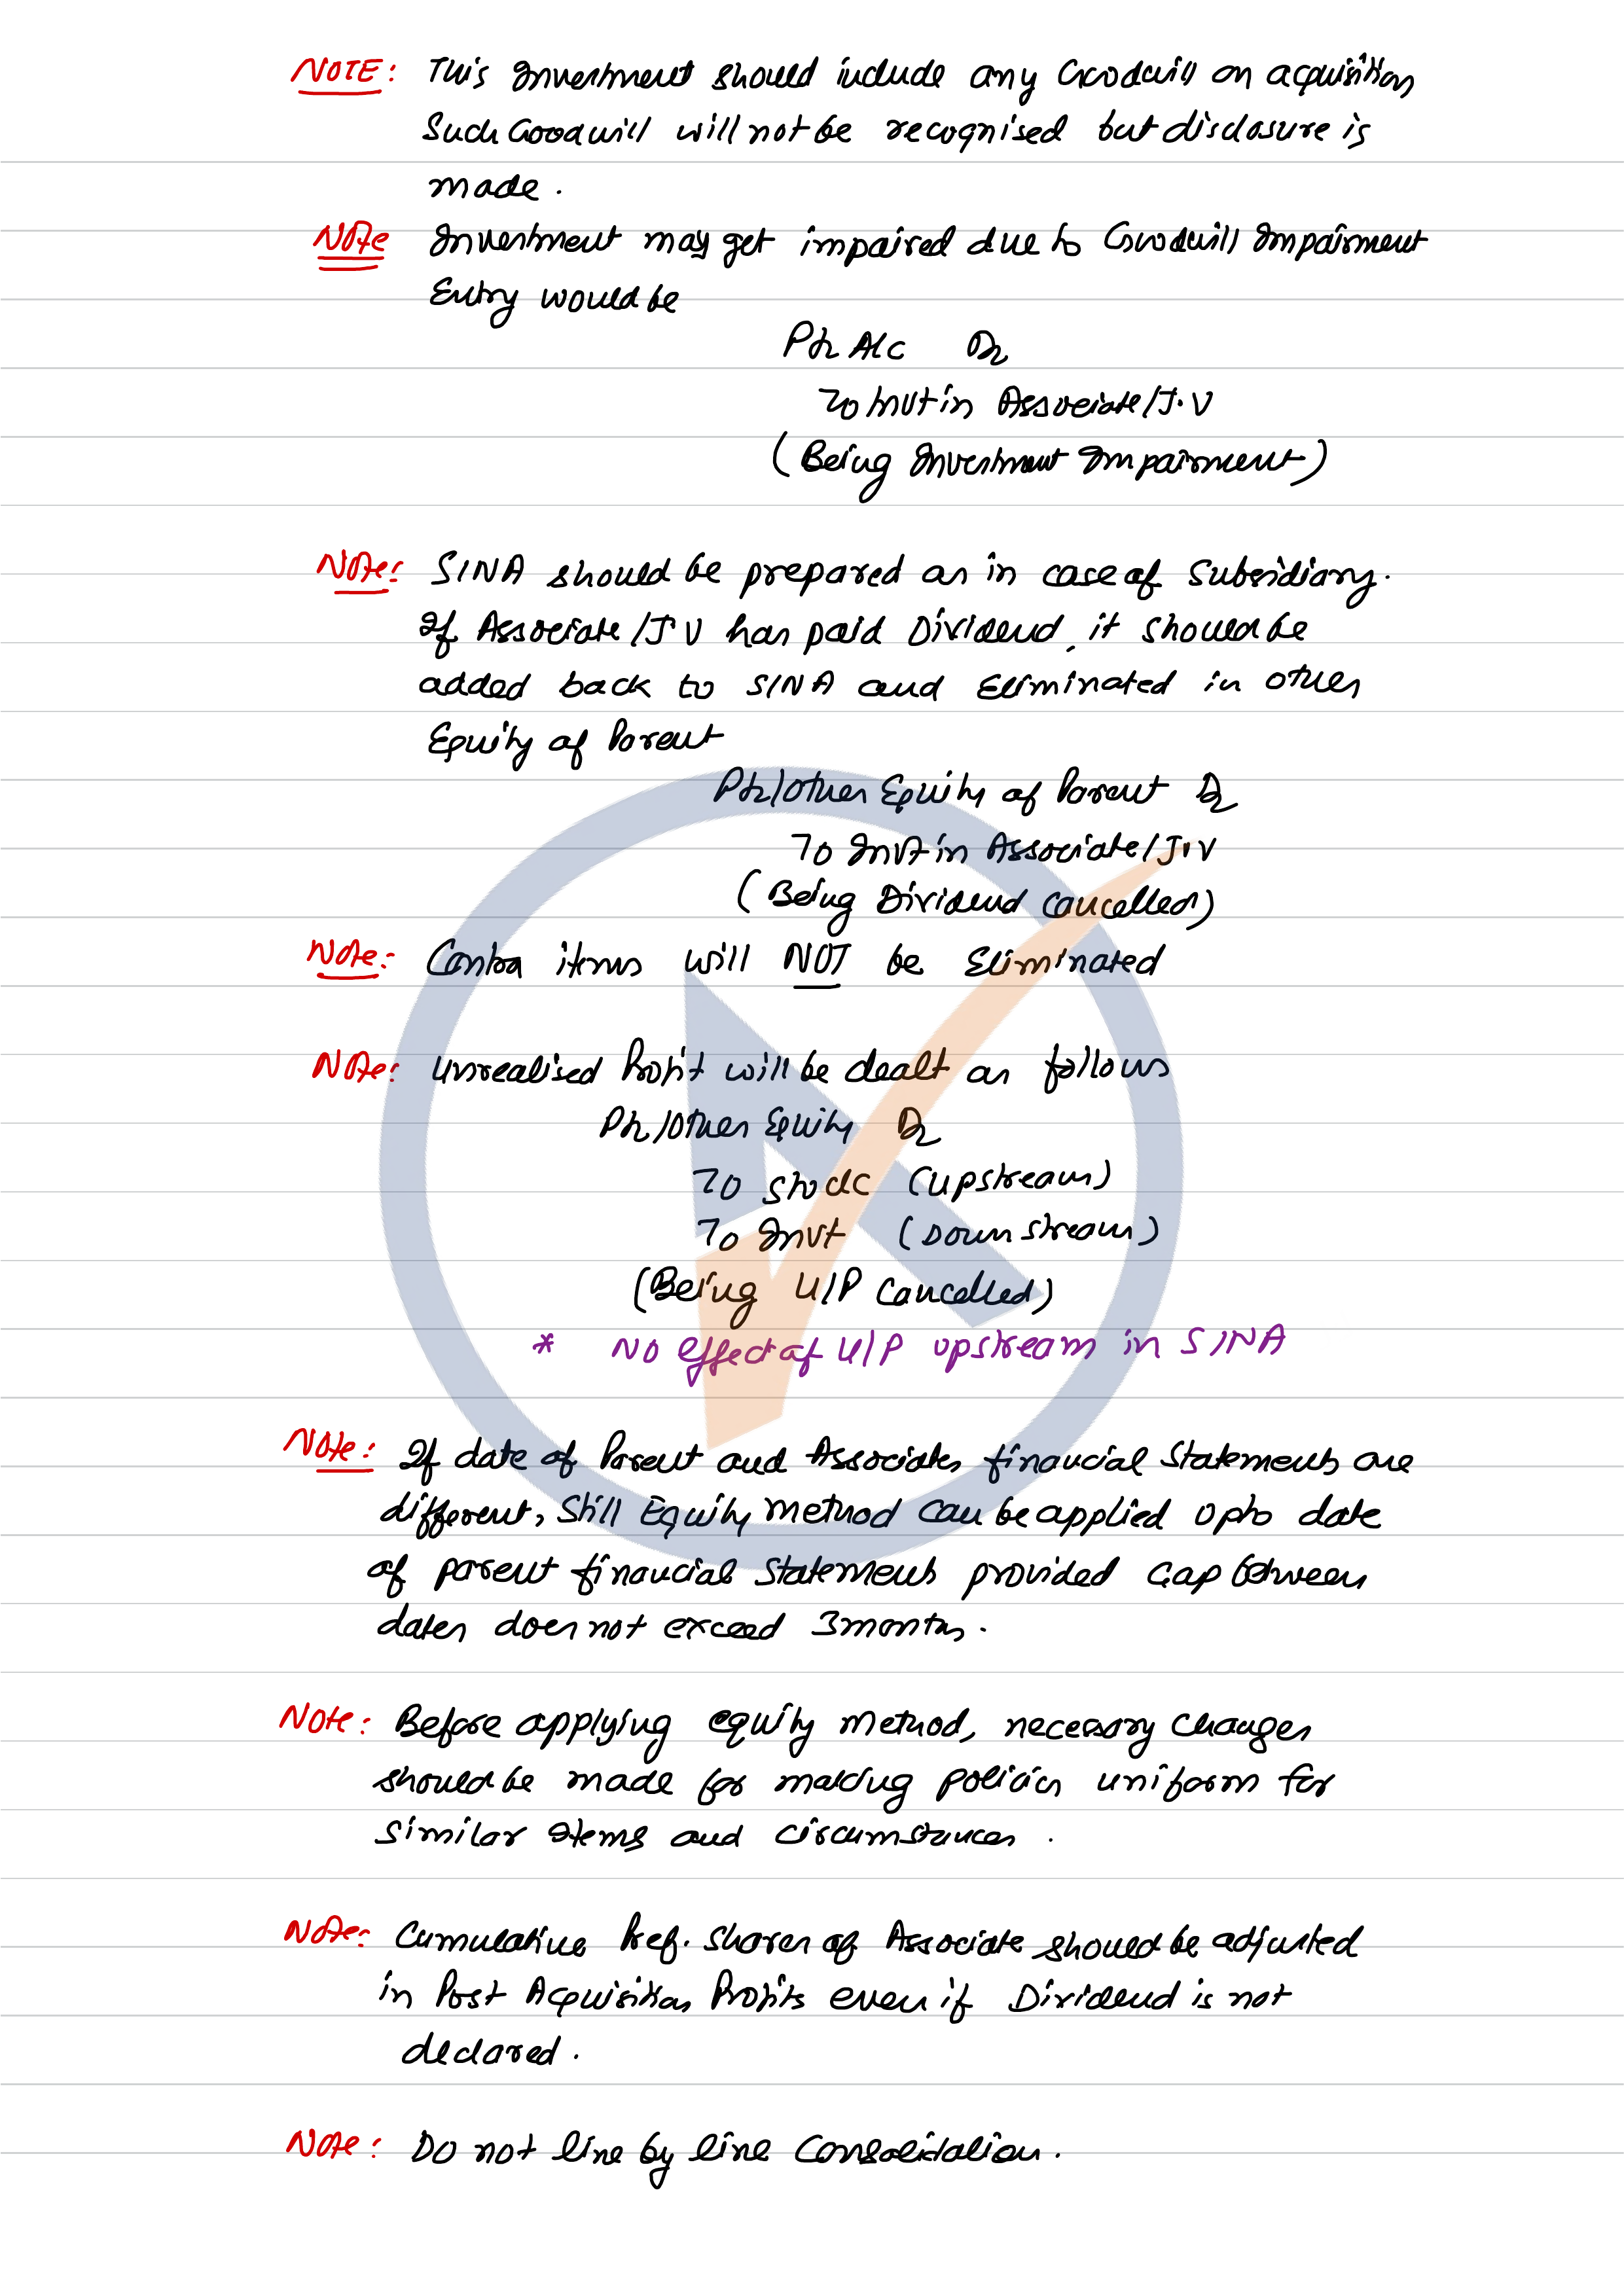 NOTE: This Investment should include any Goodwill on acquisition
Such Goodwill will not be recognised but disclosure is
made.
Note Investment may get impaired due to Goodwill Impairment
Entry would be
P&L A/c Dr
To Invt in Associate/J.V
(Being Investment Impairment)
Note: SINA should be prepared as in case of Subsidiary.
If Associate/J.V has paid Dividend, it should be
added back to SINA and Eliminated in other
Equity of Parent
P&L/Other Equity of Parent Dr
To Invt in Associate/J.V
(Being Dividend Cancelled)
Note: Contra items will NOT be Eliminated
Note: Unrealised Profit will be dealt as follows
P&L/Other Equity Dr
To Stock (Upstream)
To Invt (Down stream)
(Being U/P Cancelled)
* No effect of U/P upstream in SINA
Note: If date of Parent and Associates financial Statements are
different, Still Equity Method Can be applied upto date
of parent financial Statements provided Gap between
dates does not exceed 3 months.
Note: Before applying equity Method, necessary changes
should be made for making policies uniform for
Similar Items and circumstances.
Note: Cumulative Pref. Shares of Associate should be adjusted
in Post Acquisition Profits even if Dividend is not
declared.
Note: Do not line by line Consolidation.